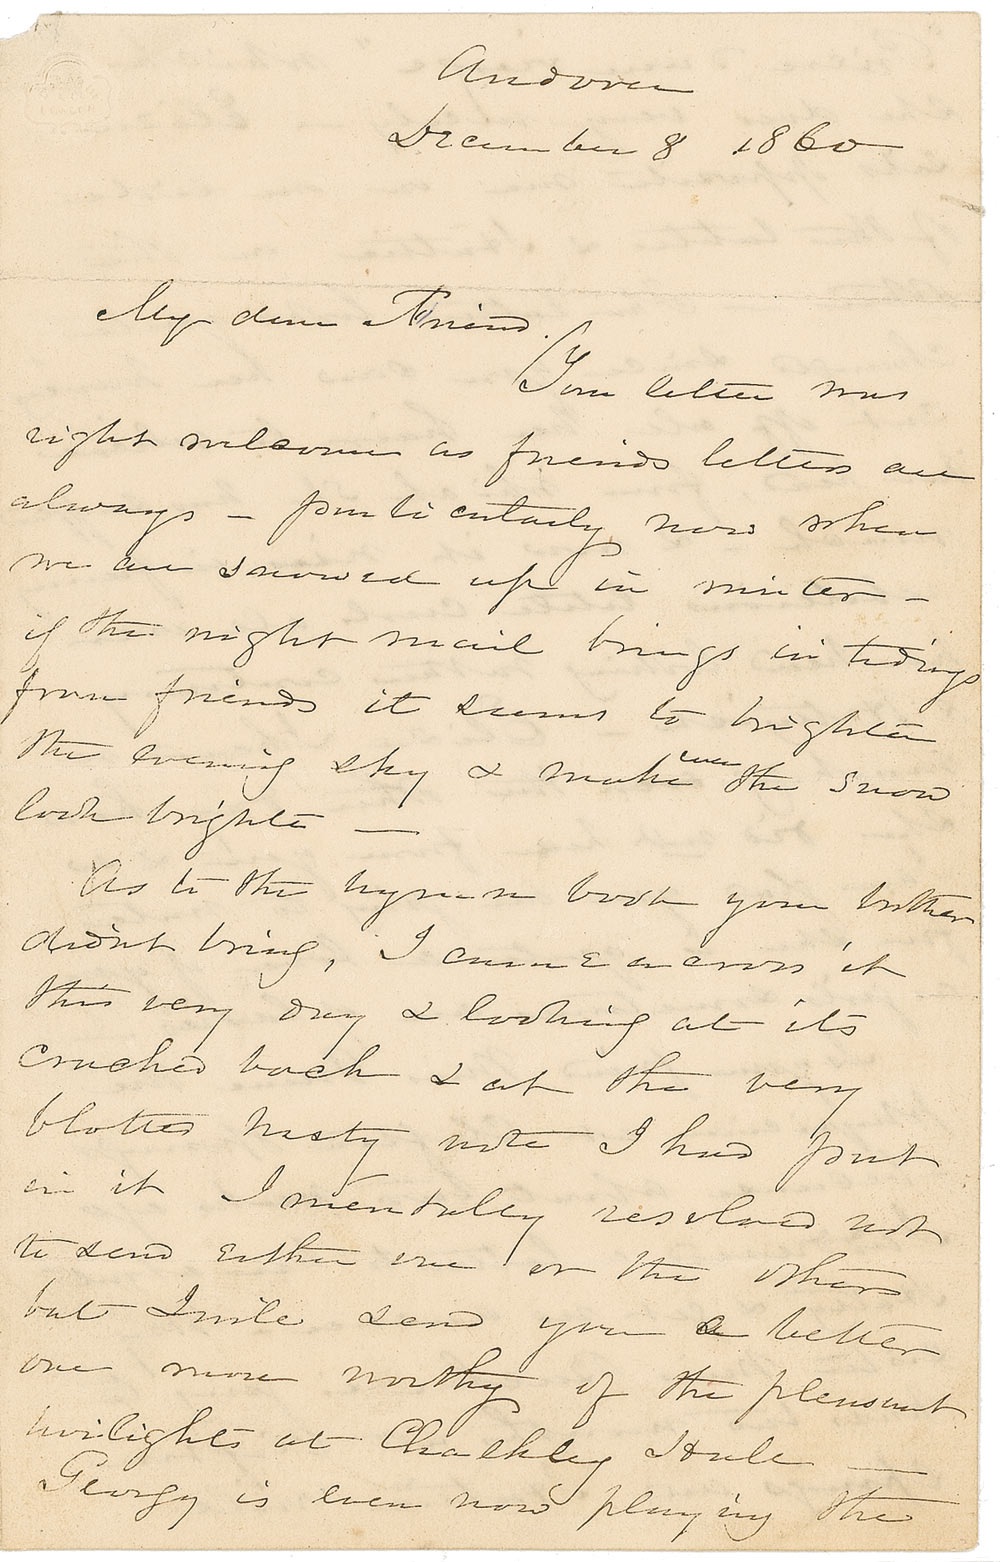 Andover
December 8 1860
My dear Friend.
Your letter was
right welcome as friends letters are
always – particularly now when
we are snowed up in winter –
if the night mail brings in tidings
from friends it seems to brighten
the evening sky & make even the snow
look brighter —
As to the hymn book your brother
didnt bring, I came across it
this very day & looking at its
cracked back & at the very
blotted hasty note I had put
in it I mentally resolved not
to send either one or the others
but I will send you a better
one more worthy of the pleasant
twilights at Chalkley Hall —
Georgy is even now playing the